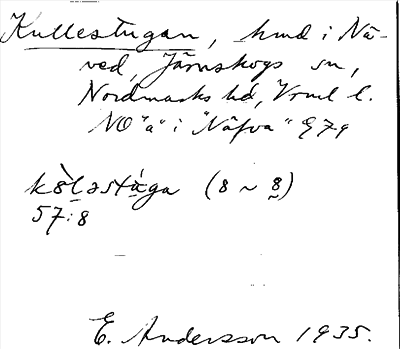 Kullestugan, hmd i Nä-
ved, Järnskogs sn,
Nordmarks hd, Vrml l.
NO "a" i "Näfva" G79
kö̀ləstù̀ga (8 ~ 8̰)
57:8
E. Andersson 1935.